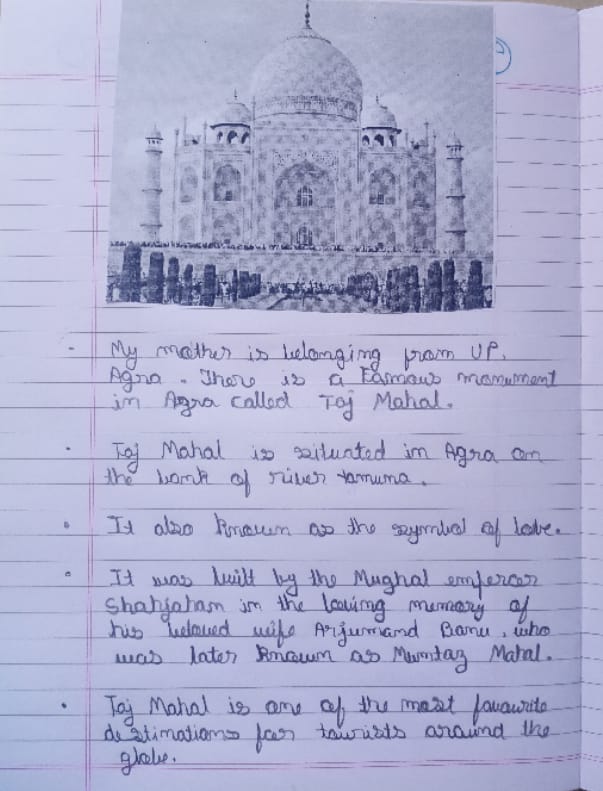 My mother is belonging from UP,
Agra. There is a Famous monument
in Agra called Taj Mahal.
Taj Mahal is situated in Agra on
the bank of river Yamuna.
It also known as the symbol of love.
It was built by the Mughal emperor
Shahjahan in the loving memory of
his beloved wife Arjumand Banu, who
was later known as Mumtaz Mahal.
Taj Mahal is one of the most favourite
destinations for tourists around the
globe.